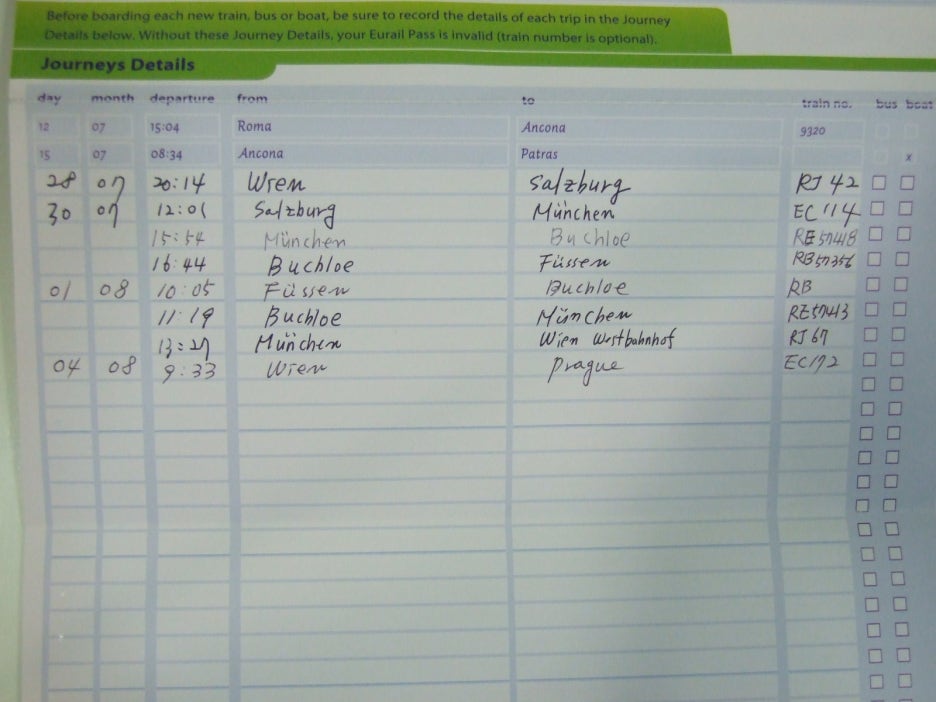 Before boarding each new train, bus or boat, be sure to record the details of each trip in the Journey
Details below. Without these Journey Details, your Eurail Pass is invalid (train number is optional).
Journeys Details
day month departure from to train no. bus boat
12 07 15:04 Roma Ancona 9320
15 07 08:34 Ancona Patras x
28 07 20:14 Wien Salzburg RJ 42
30 07 12:01 Salzburg München EC 114
15:54 München Buchloe RE 57418
16:44 Buchloe Füssen RB 57356
01 08 10:05 Füssen Buchloe RB
11:19 Buchloe München RE 57413
13:27 München Wien Westbahnhof RJ 67
04 08 9:33 Wien Prague EC172